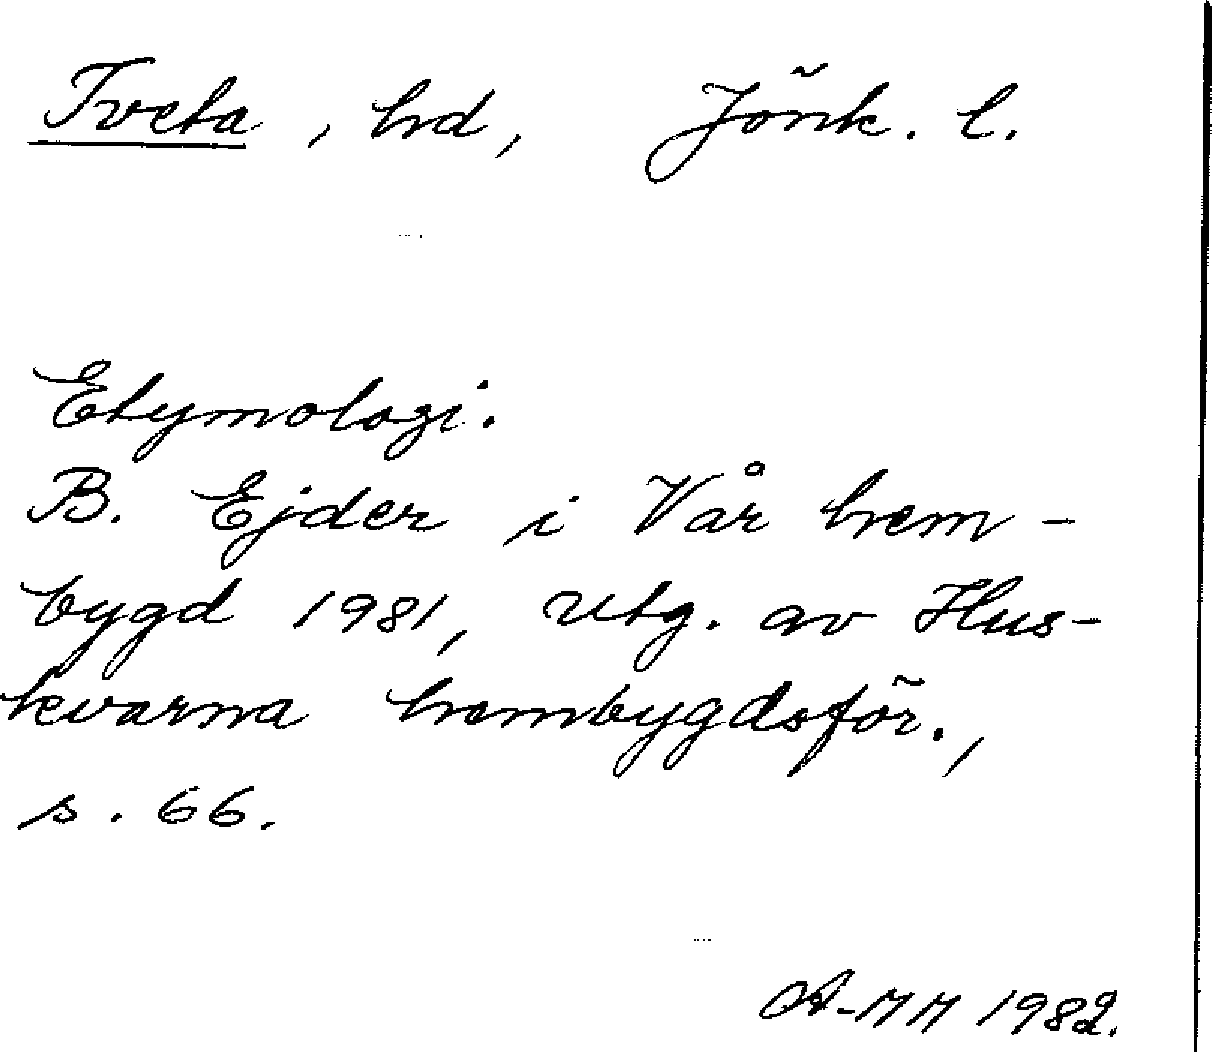 Tveta, hd, Jönk. l.
Etymologi.
B. Ejder i Vår hem-
bygd 1981, utg. av Hus-
kvarna hembygdsför.,
s. 66.
1982.